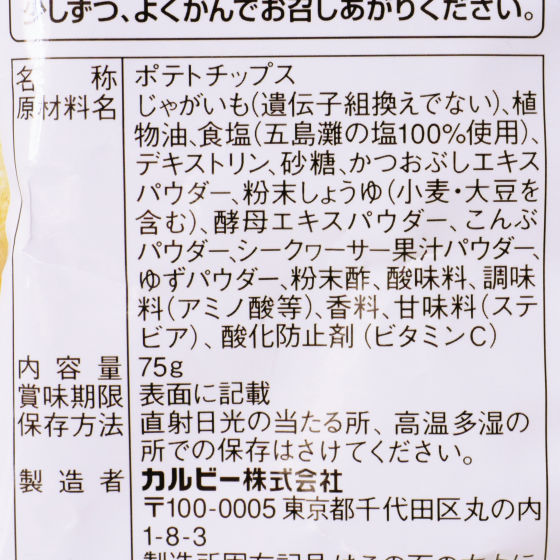 少しずつ、よくかんでお召しあがりください。
名称 ポテトチップス
原材料名 じゃがいも(遺伝子組換えでない)、植
物油、食塩(五島灘の塩100%使用)、
デキストリン、砂糖、かつおぶしエキス
パウダー、粉末しょうゆ(小麦・大豆を
含む)、酵母エキスパウダー、こんぶ
パウダー、シークヮーサー果汁パウダー、
ゆずパウダー、粉末酢、酸味料、調味
料(アミノ酸等)、香料、甘味料(ステ
ビア)、酸化防止剤(ビタミンC)
内容量 75g
賞味期限 表面に記載
保存方法 直射日光の当たる所、高温多湿の
所での保存はさけてください。
製造者 カルビー株式会社
〒100-0005 東京都千代田区丸の内
1-8-3